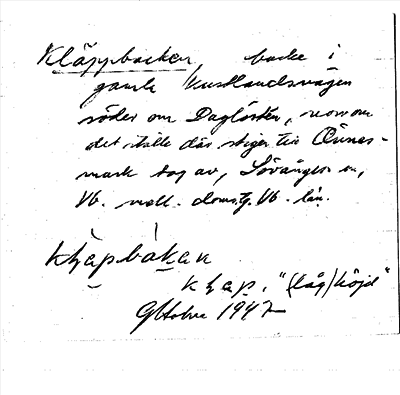 Kläppbacken, backe i
gamla kustlandsvägen
söder om Daglösten, norr om
det ställe där stigen till Önnes-
mark tog av, Lövångers sn,
Vb. mell. doms.g. Vb. län.
kḷapbakan
kḷap, "(låg) höjd"
Oktober 1947